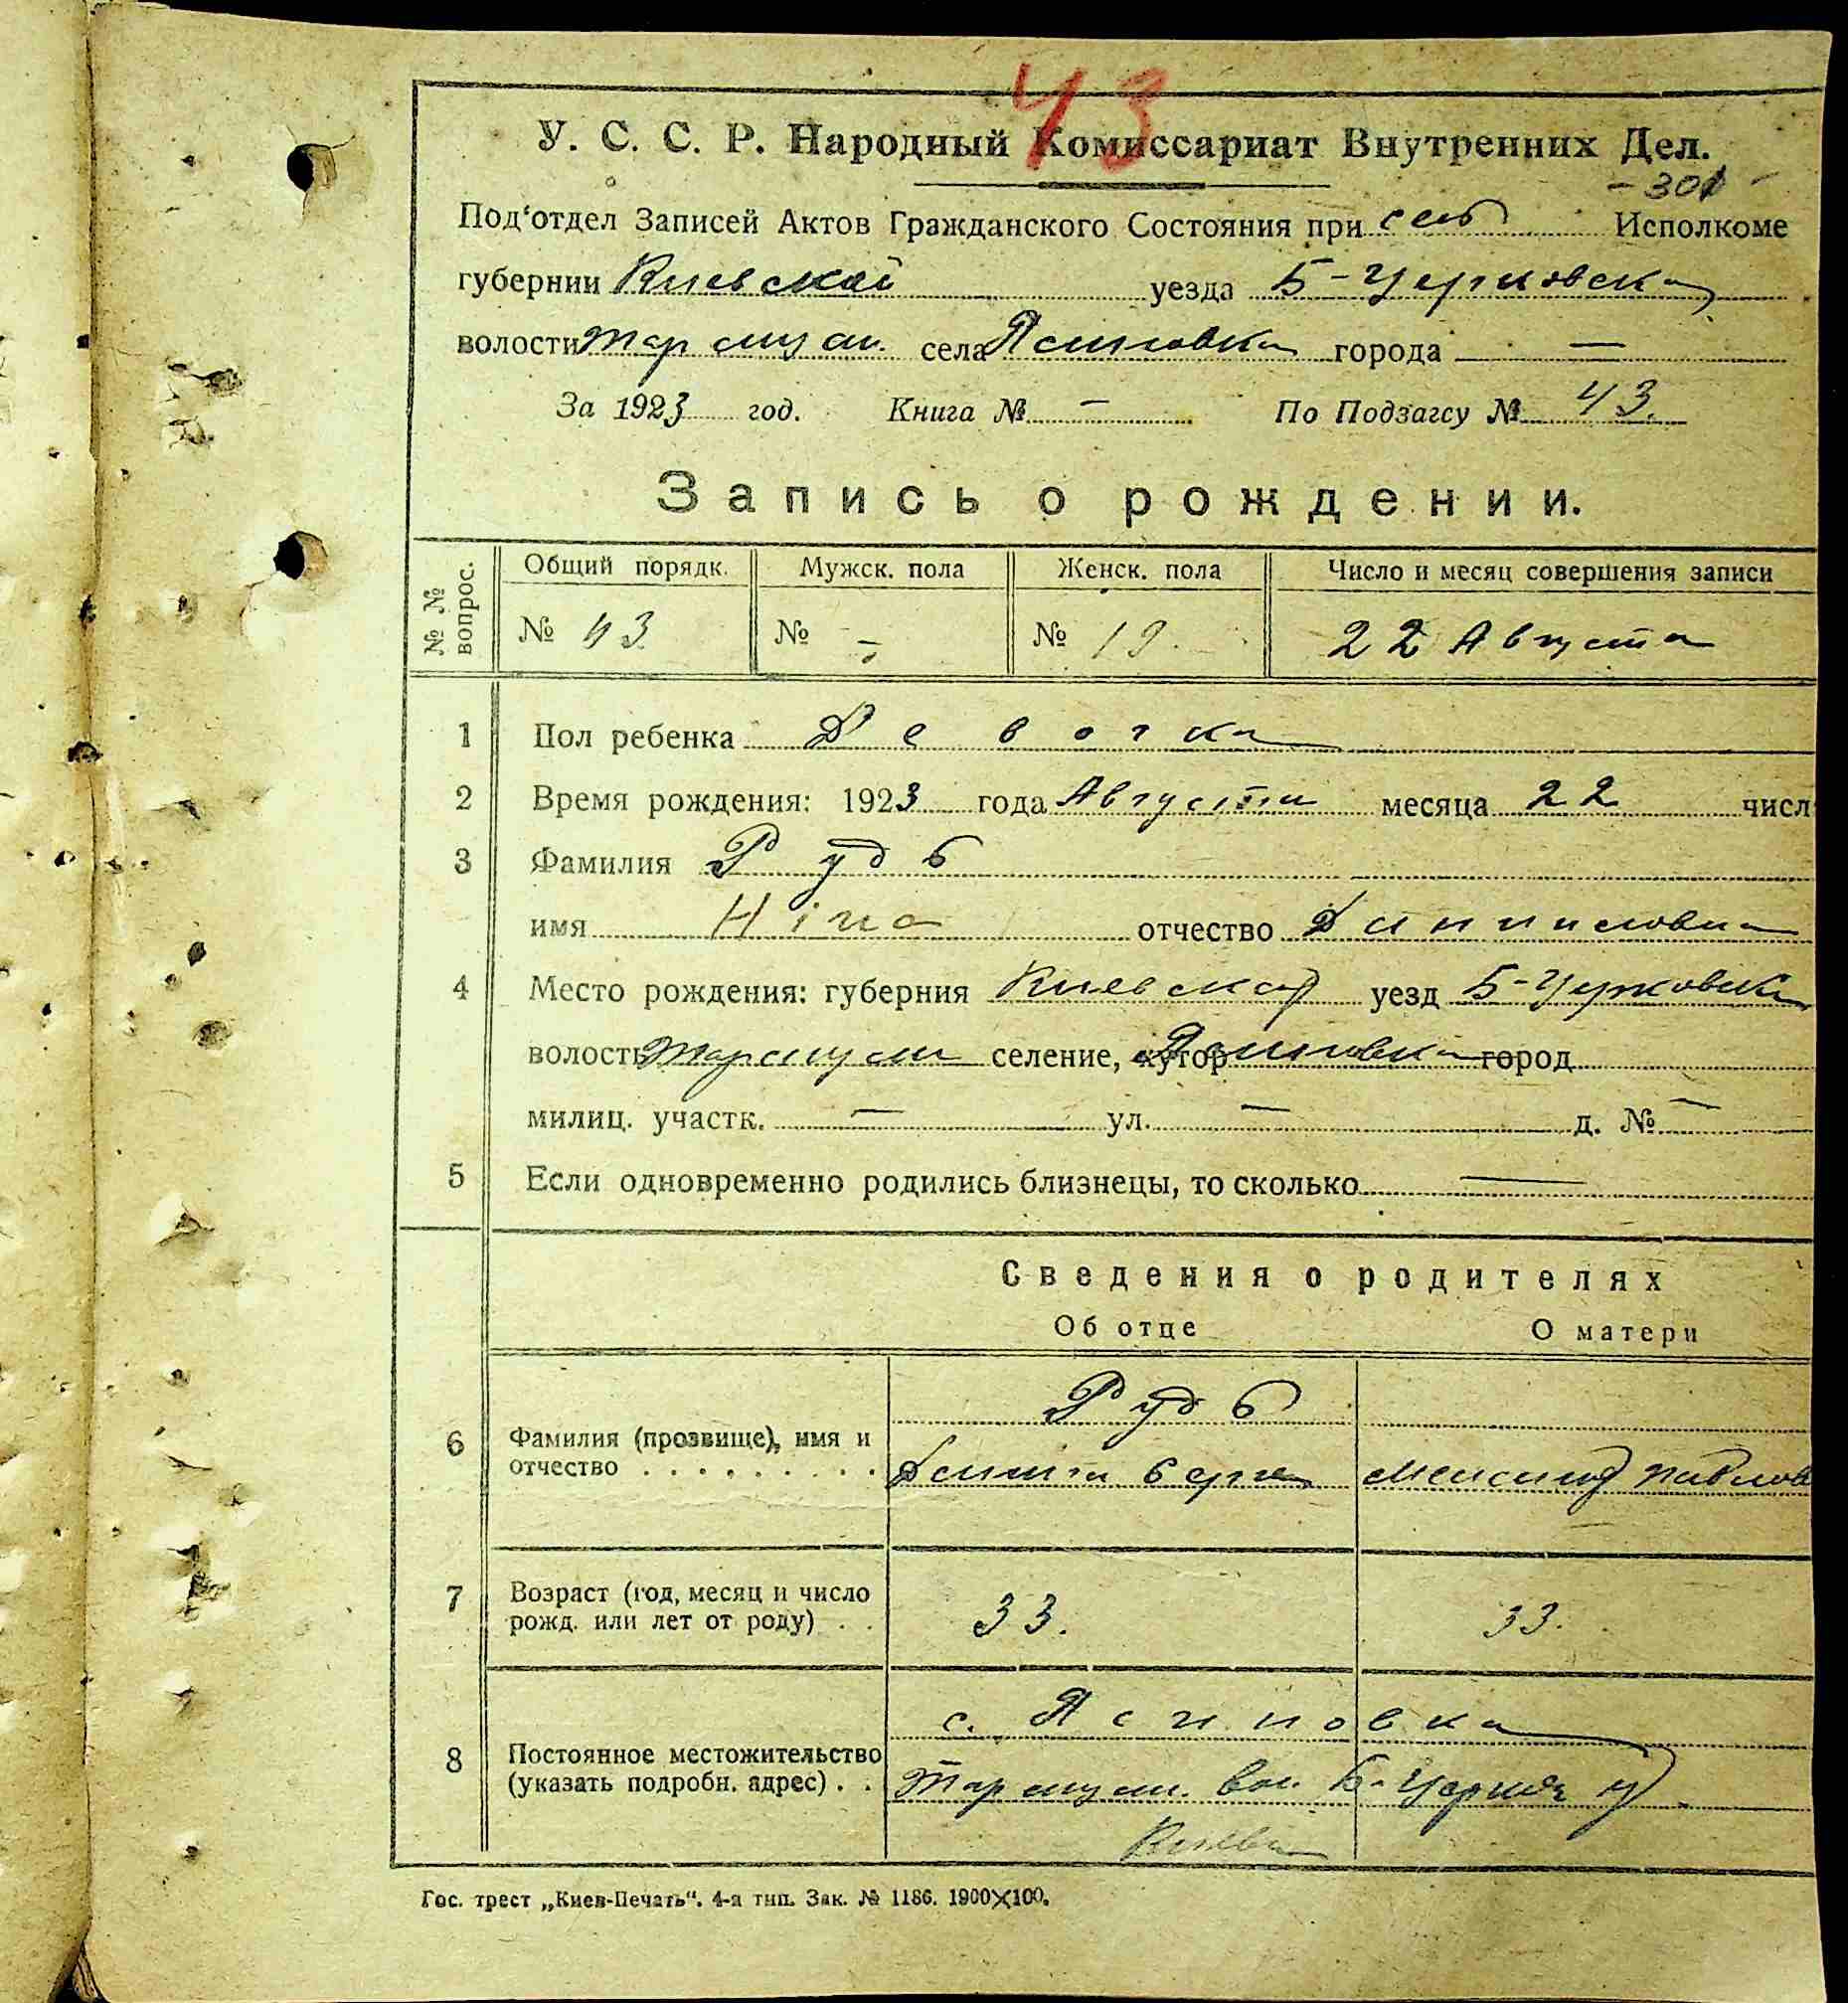 43
У. С. С. Р. Народный Комиссариат Внутренних Дел.
- 301 -
Под‘отдел Записей Актов Гражданского Состояния при сель Исполкоме
губернии Киевской уезда Б-Церковска
волости села города —
За 1923 год. Книга № – По Подзагсу № 43.
Запись о рождении.
№ № вопрос. Общий порядк. Мужск. пола Женск. пола Число и месяц совершения записи
№ 43 № – № 19. 22 Августа
1 Пол ребенка Девочка
2 Время рождения: 1923 года Августа месяца 22 числ
3 Фамилия Рудь
имя Ніна отчество
4 Место рождения: губерния Киевская уезд Б-Церковск
волость селение, хутор город
милиц. участк. — ул. — д. № —
5 Если одновременно родились близнецы, то сколько —
Сведения о родителях
Об отце О матери
Рудь
6 Фамилия (прозвище), имя и
отчество . . . . . . . . .
7 Возраст (год, месяц и число
рожд. или лет от роду) . . 33. 33.
с. Ясиновка
8 Постоянное местожительство
(указать подробн. адрес) . . вол. у
Гос. трест „Киев-Печать“. 4-я тип. Зак. № 1186. 1900X100.